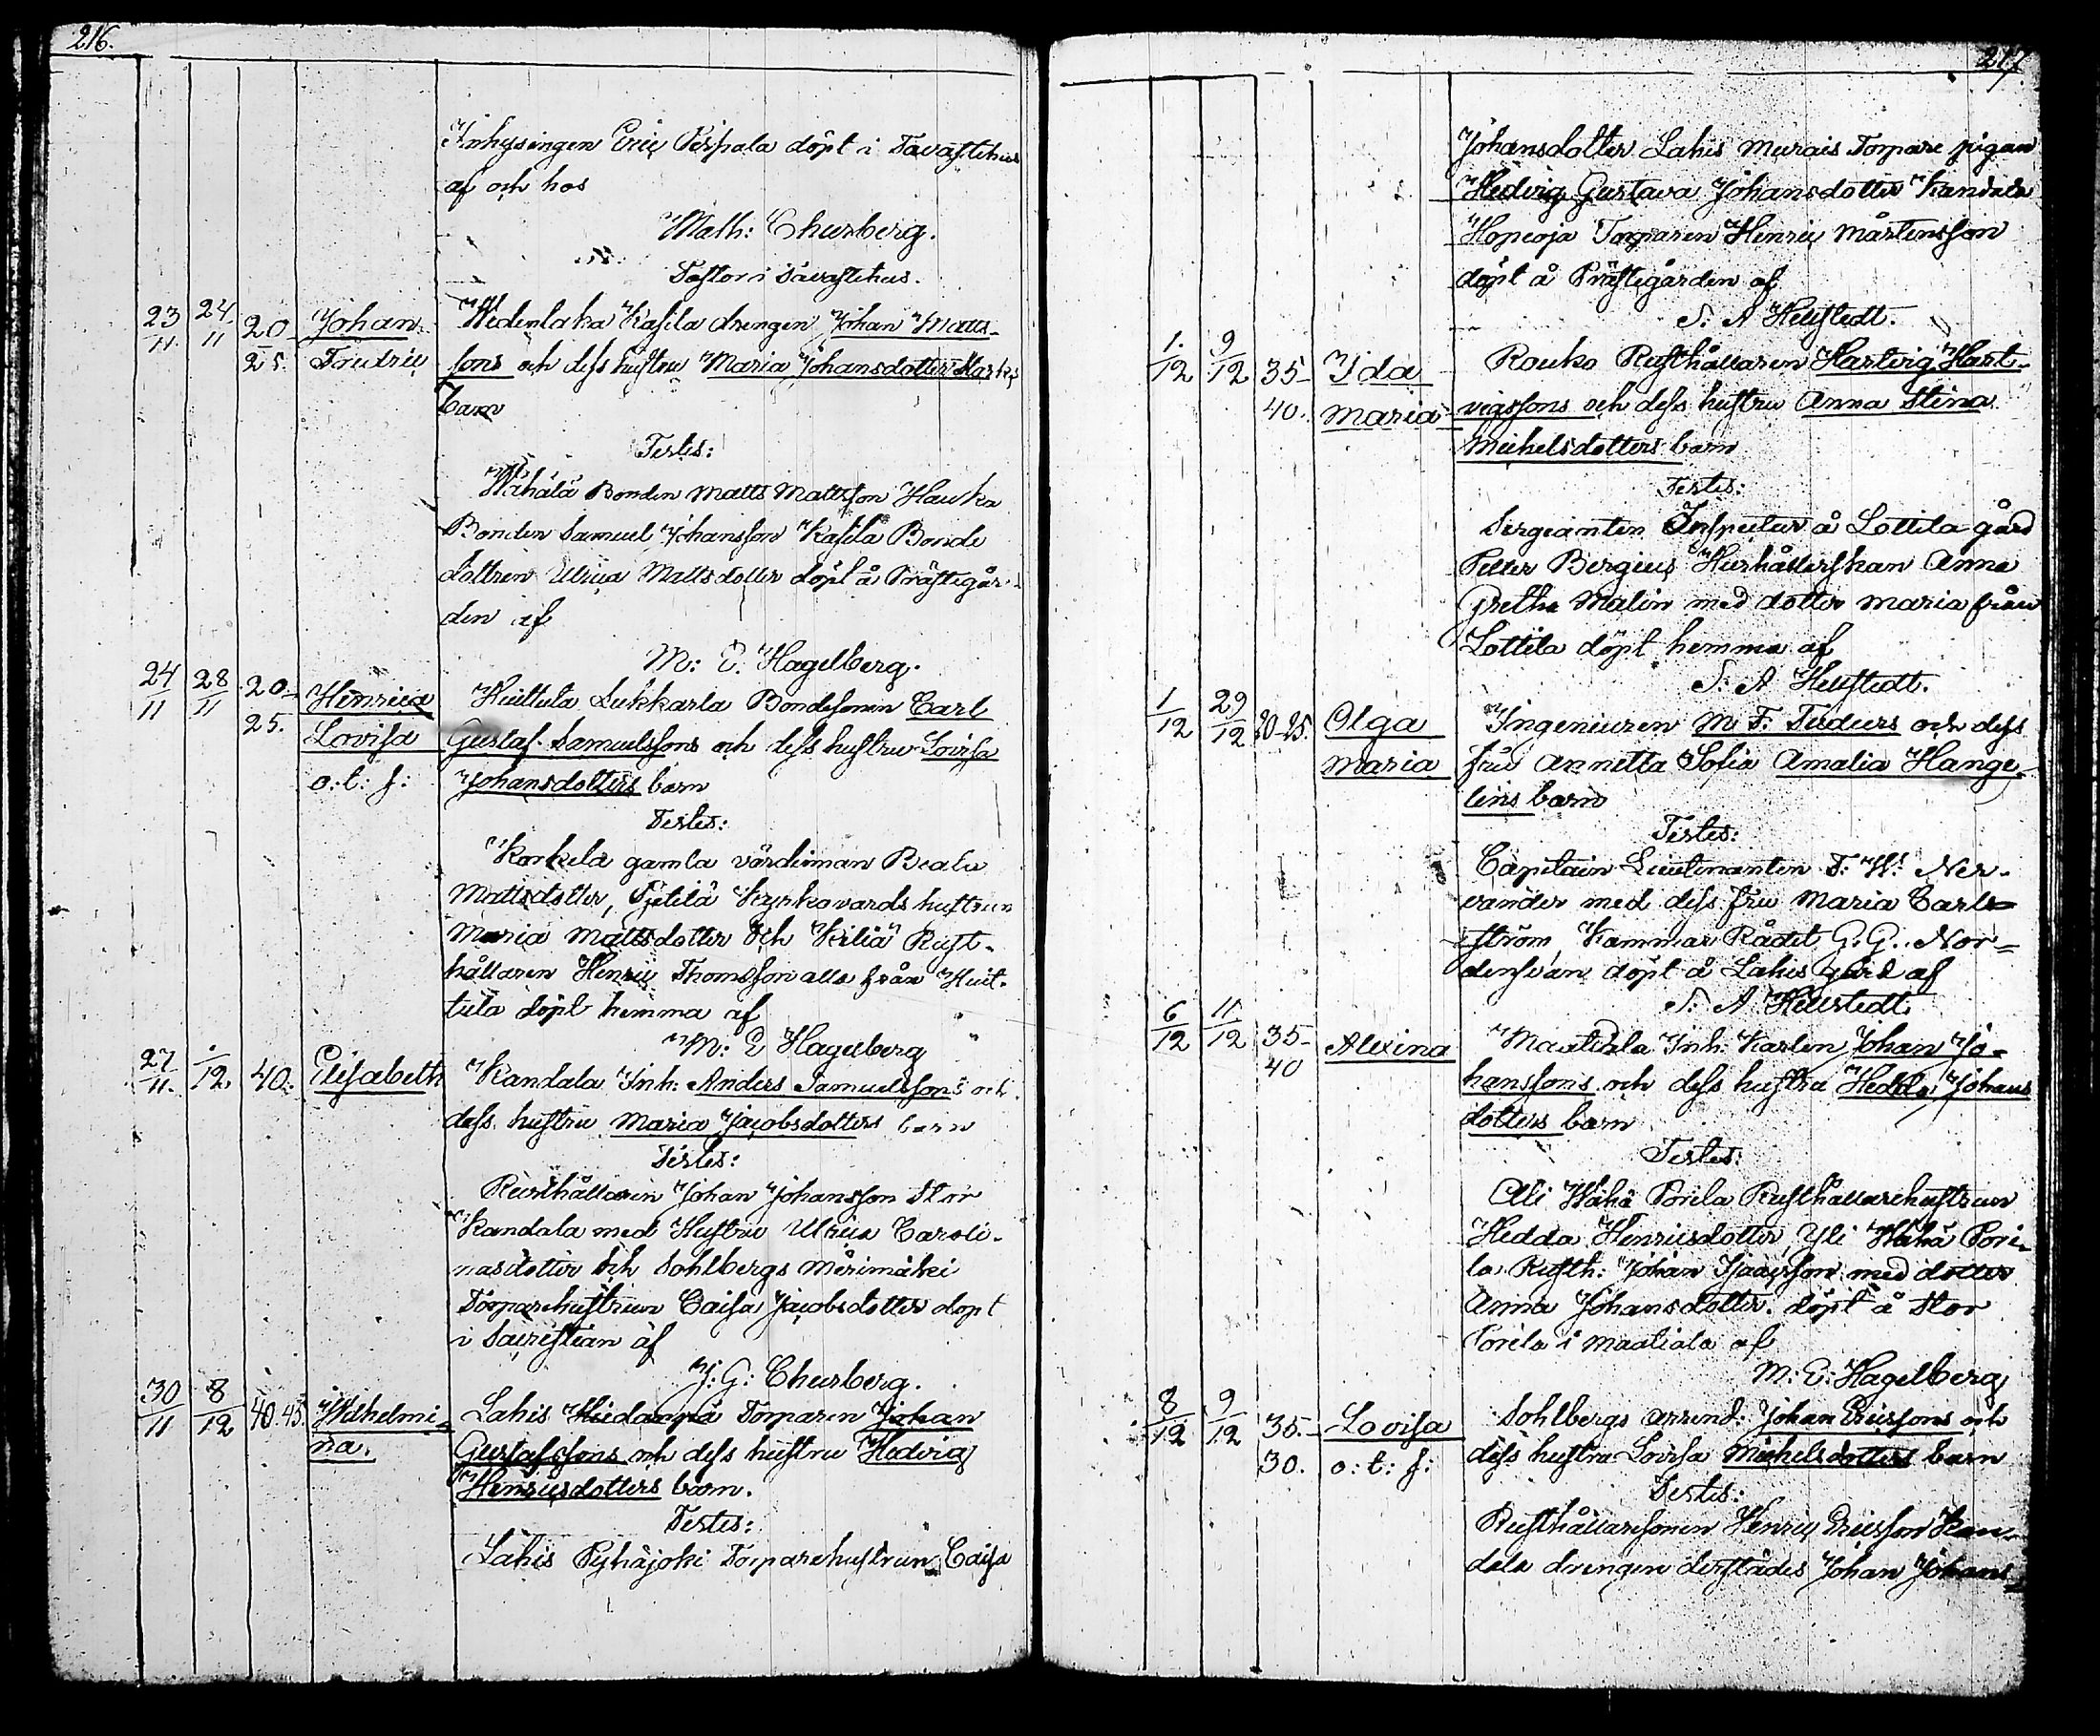 216.
Inhysingen Eric Perttala döpt i Tavastehus
af och hos
Math: Churberg.
Pastor i Tavastehus.
23/11 24/11 20 Johan Wedenlaka Kasila drengen Johan Matts-
25. Fredric sons och dess hustru Maria Johansdotter
barn
Testes:
Wähälä Bonden Matts Mattsson Hauka
Bonden Samuel Johansson Kasila Bonde
dottren Ulrica Mattsdotter döpt å Prästegår-
den af
M: E. Hagelberg.
24/11 28/11 20- Henrica Huittula Lukkarla Bondesonen Carl
25. Lovisa Gustaf Samuelssons och dess hustru Lovisa
o: t: f: Johansdotters barn
Testes:
Korkela gamla värdinnan Beata
Mattsdotter, Pjetilä Kyrkovärds hustrun
Maria Mattsdotter och Kiliä Rust-
hållaren Henric Thomsson alla från Huit-
tula döpt hemma af
M: E Hagelberg
27/11. /12 40. Elisabeth Kandala Inh: Anders Samuelssons och
dess hustru Maria Jacobsdotters barn
Testes:
Rusthållaren Johan Johansson Stor
Kandala med Hustru Ulrica Caroli-
nasdotter och Sohlbergs Mörimäki
Torparehustrun Caisa Jacobsdotter döpt
i Sacristian af
J: G: Churberg.
30/11 8/12 40.45. Wilhelmi- Lahis Torparen Johan
na. Gustafssons och dess hustru Hedvig
Henricsdotters barn.
Testes:
Lahis Pyhäjoki Torparehustrun Caisa
217.
Johansdotter Lahis Murais Torpare pigan
Hedvig Gustava Johansdotter Kandala
Hopeoja Torparen Henric Mårtensson
döpt å Prästegården af
S: A Hellstedt.
1./12 9/12 35- Ida Rouko Rusthållaren Hartvig Hart-
40. Maria vigssons och dess hustru Anna Stina
Michelsdotters barn
Testes:
Sergeanten Inspector å Lottila gård
Petter Bergius Hushållerskan Anna
Gretha Malin med dotter Maria från
Lottila döpt hemma af
S: A Hellstedt.
1/12 29/12 20-25. Olga Ingenieuren M F: Tuders och dess
Maria fru Annetta Sofia Amalia Hange-
lins barn
Testes:
Capitain Lieutenanten F: W: Ner-
vander med dess fru Maria Carl-
ström Kammar Rådet G: G: Nor-
densvan döpt å Lahis gård af
S: A Hellstedt.
6/12 11/12 35- Alexina Maatiala Inh: Karlen Johan Jo-
40 hanssons och dess hustru Hedda Johans
dotters barn
Testes:
Ali Wähä Porila Rusthållarehustrun
Hedda Henricsdotter, Yli Wähä Pori-
la Rusth: Johan Isacsson med dotter
Anna Johansdotter. döpt å Stor
Porila i Maatiala af
M: E: Hagelberg
8/12 9/12 35.- Lovisa Sohlbergs arrend: Johan Ericssons och
30. o: t: f: dess hustru Lovisa Michelsdotters barn
Testes:
Rusthållaresonen Henric Ericsson Kan-
dala drengen derstädes Johan Johans-